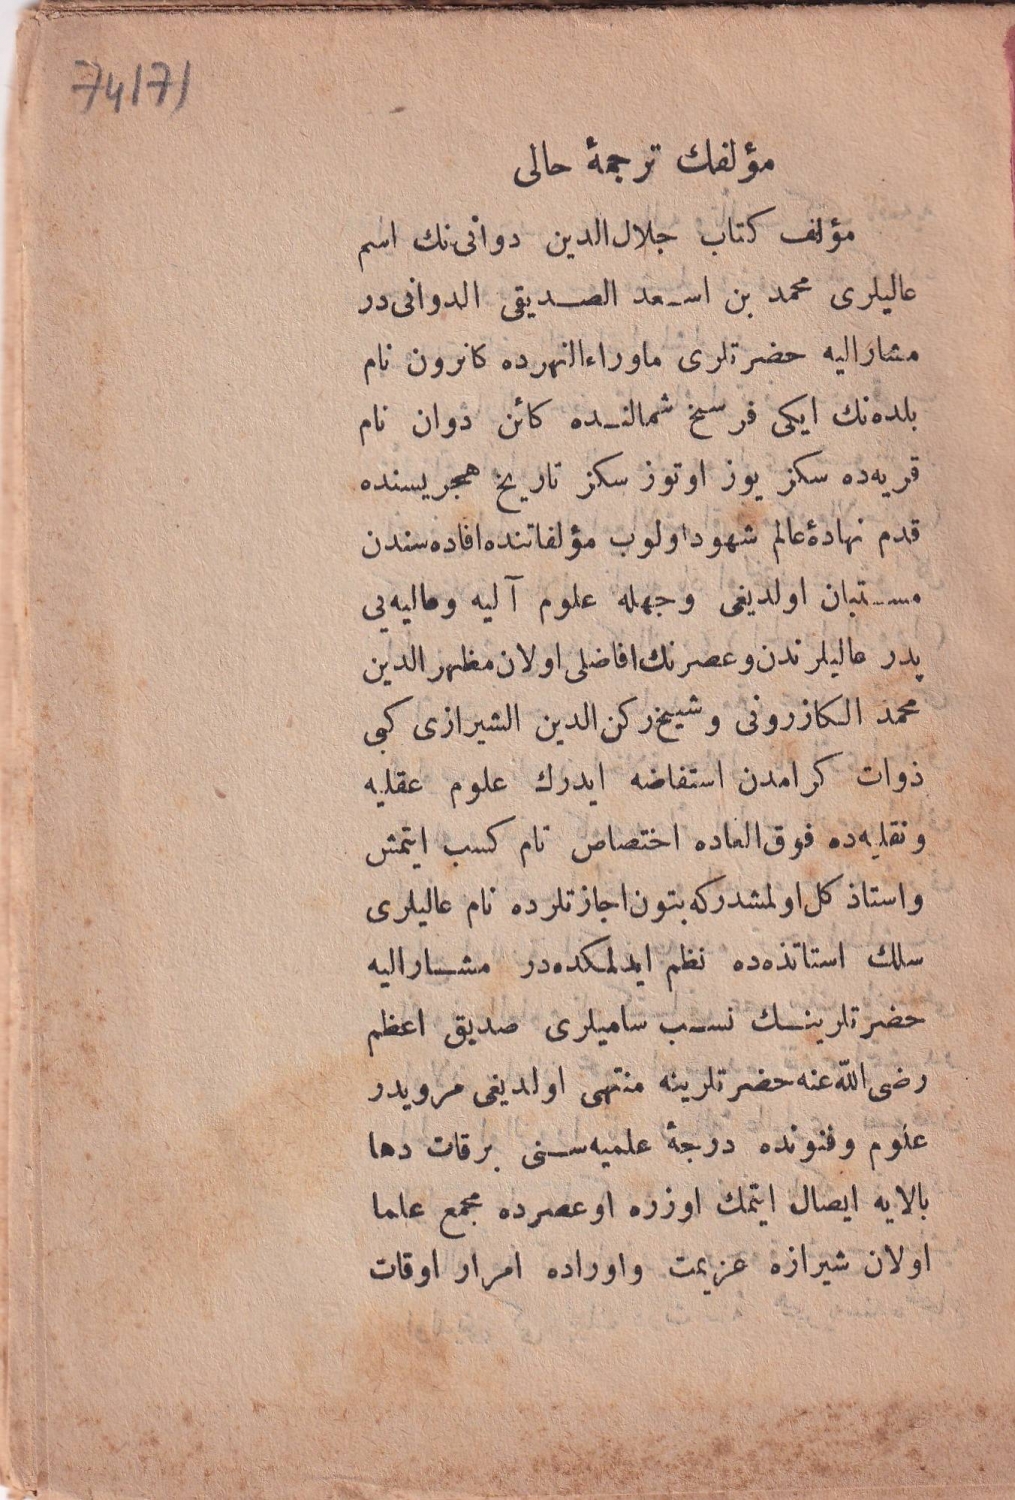 74171
مؤلفك ترجمۀ حالی
مؤلف كتاب جلال‌الدین دوانی‌نك اسم
عالیلری محمد بن اسعد الصدیقی الدوانی‌در
مشارالیه حضرتلری ماوراءالنهرده كازرون نام
بلده‌نك ایكی فرسخ شمالنده كائن دوان نام
قریه‌ده سكز یوز اوتوز سكز تاریخ هجریسنده
قدم نهادۀ عالم شهود اولوب مؤلفاتنده افاده‌سندن
مستبان اولدیغی وجهله علوم آلیه و عالیه‌یی
پدر عالیلرندن و عصرنك افاضلی اولان مظهرالدین
محمد الكازرونی و شیخ ركن‌الدین الشیرازی كبی
ذوات كرامدن استفاضه ایدرك علوم عقلیه
و نقلیه‌ده فوق‌العاده اختصاص تام كسب ایتمش
و استاذ كل اولمشدركه بتون اجازتلرده نام عالیلری
سلك استاتذه‌ده نظم ایدلمكده‌در مشارالیه
حضرتلرینك نسب سامیلری صدیق اعظم
رضی‌الله عنه حضرتلرینه منتهی اولدیغی مرویدر
علوم و فنونده درجۀ علمیه‌سنی برقات دها
بالایه ایصال ایتمك اوزره او عصرده مجمع علما
اولان شیرازه عزیمت و اوراده امرار اوقات